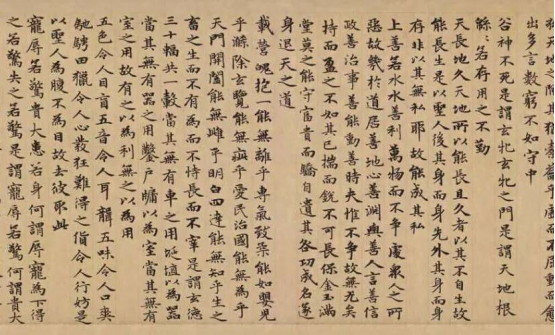 天地之間其猶橐籥虛而不屈動而愈
出多言數窮不如守中
谷神不死是謂玄牝玄牝之門是謂天地根
緜〻若存用之不勤
天長地久天地所以能長且久者以其不自生故
能長生是以聖人後其身而身先外其身而身
存非以其無私耶故能成其私
上善若水水善利萬物而不爭處衆人之所
惡故幾於道居善地心善淵與善人言善信
政善治事善能動善時夫惟不爭故無尤矣
持而盈之不如其已揣而銳不可長保金玉滿
堂莫之能守富貴而驕自遺其咎功成名遂
身退天之道
載營魄抱一能無離乎專氣致柔能如嬰兒
乎滌除玄覽能無疵乎愛民治國能無為乎
天門開闔能無雌乎明白四達能無知乎生之
畜之生而不有為而不恃長而不宰是謂玄德
三十輻共一轂當其無有車之用埏埴以為器
當其無有器之用鑿戶牖以為室當其無有
室之用故有之以為利無之以為用
五色令人目盲五音令人耳聾五味令人口爽
馳騁田獵令人心發狂難得之貨令人行妨是
以聖人為腹不為目故去彼取此
寵辱若驚貴大患若身何謂辱寵為下得
之若驚失之若驚是謂寵辱若驚何謂貴大